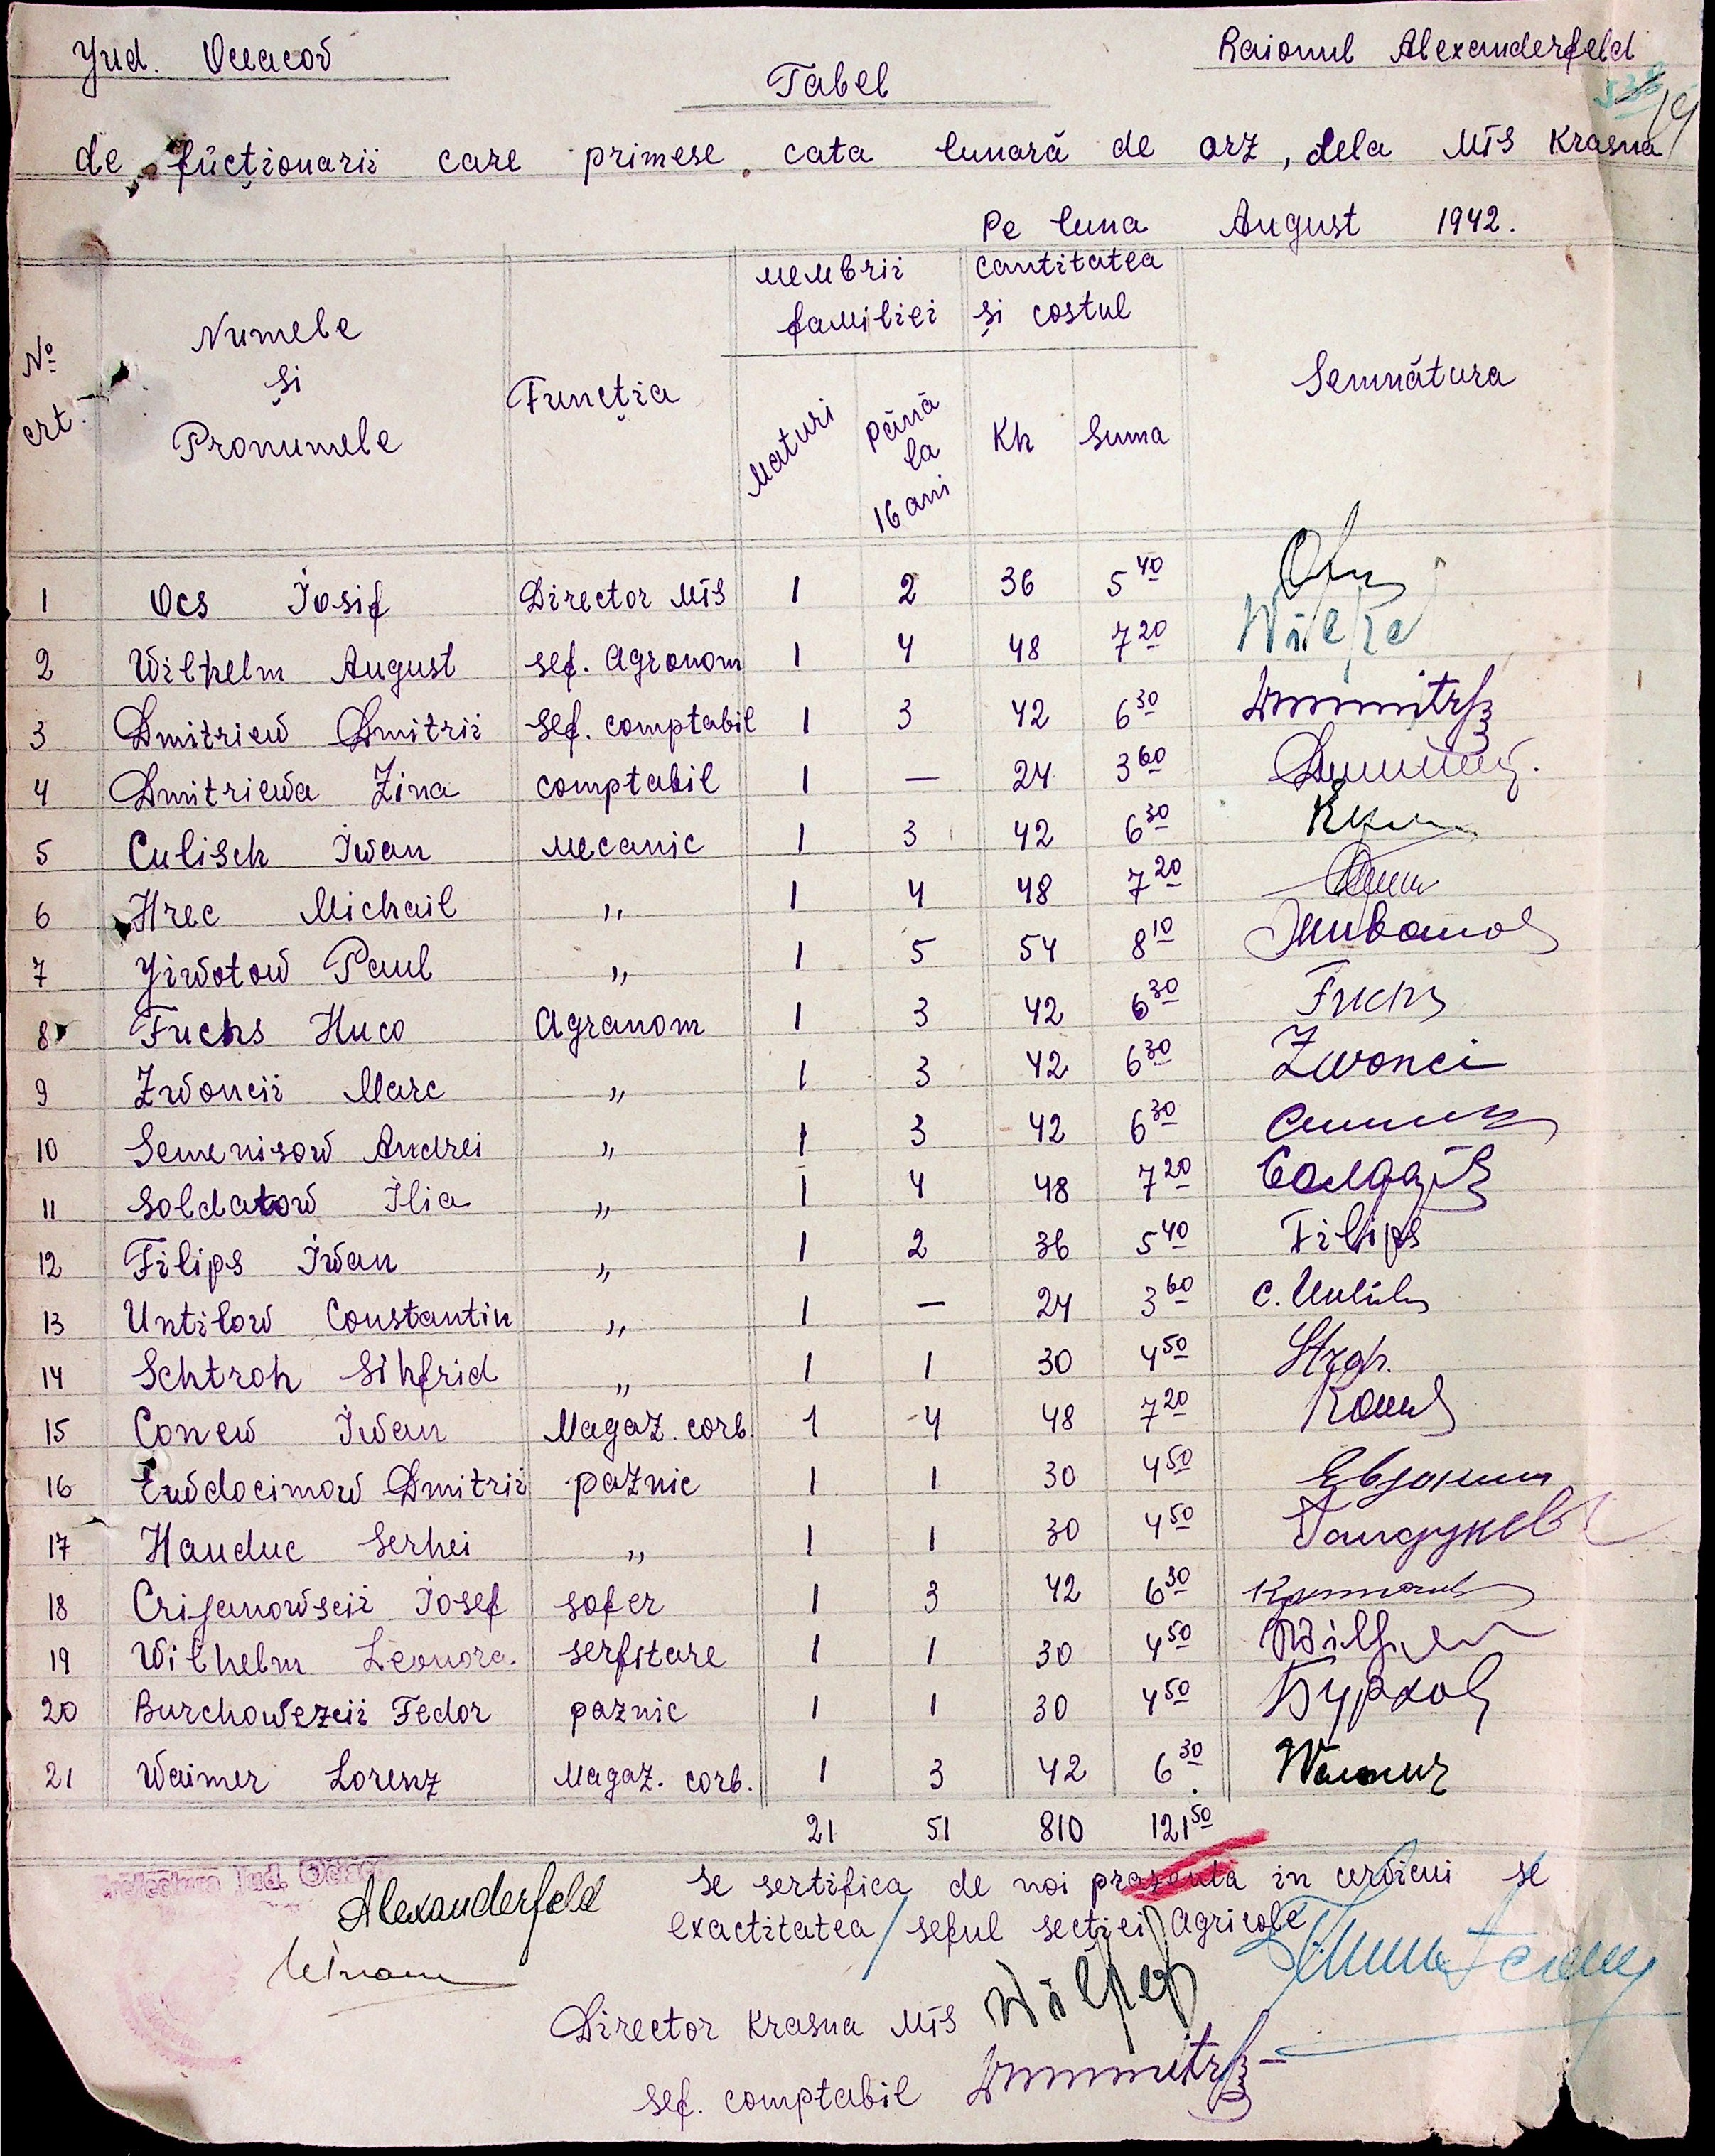 Jud. Oceacov Raionul Alexanderfeld
Tabel
de fucționarii care primesc cata lunară de orz, dela MTS Krasna
Pe luna August 1942.
No crt. Numele și Pronumele Funcția Membrii familiei Cantitatea și costul Semnătura
Maturi până la 16 ani Kh Suma
1 Ocs Iosif Director MTS 1 2 36 5 40
2 Wilhelm August sef. Agronom 1 4 48 7 20
3 Dmitriew Dmitrii sef. comptabil 1 3 42 6 30
4 Dmitriewa Zina comptabil 1 — 24 3 60
5 Culisch Iwan Mecanic 1 3 42 6 30
6 Hrec Michail „ 1 4 48 7 20
7 Jiwotow Paul „ 1 5 54 8 10
8 Fuchs Huco Agranom 1 3 42 6 30 Fuchs
9 Zwoncii Marc „ 1 3 42 6 30 Zwonci
10 Semenisow Andrei „ 1 3 42 6 30
11 Soldatow Ilia „ 1 4 48 7 20
12 Filips Iwan „ 1 2 36 5 40 Filips
13 Untilow Constantin „ 1 — 24 3 60
14 Schtroh Sihfrid „ 1 1 30 4 50 Stroh.
15 Conew Iwan Magaz. corb. 1 4 48 7 20
16 Ewdocimow Dmitrii paznic 1 1 30 4 50
17 Handuc Serhei „ 1 1 30 4 50
18 Crijanowscii Iosef sofer 1 3 42 6 30
19 Wilhelm Leonora serfitare 1 1 30 4 50
20 Burchowezcii Fedor paznic 1 1 30 4 50
21 Waimer Lorenz Magaz. corb. 1 3 42 6 30
21 51 810 121 50
Alexanderfeld
se sertifica de noi prazenta in cerdicui se
exactitatea / seful secției Agricole
Director Krasna MTS
sef. comptabil